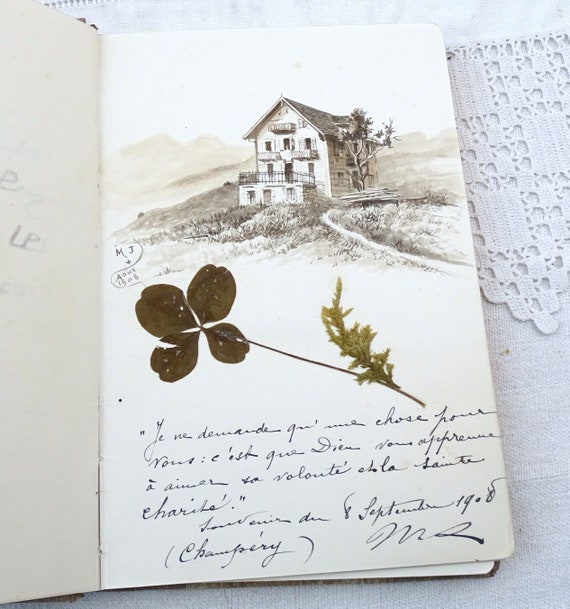 M J
+
Aout
1908
"Je ne demande qu'une chose pour
vous: c'est que Dieu vous apprenne
à aimer sa volonté et la sainte
charité."
Souvenir du 8 Septembre 1908
(Champéry)